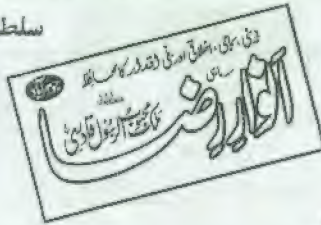 سلطا
دینی، سماجی، اخلاقی اور ملی اقدار کا محافظ
سہ ماہی
انوارِ رضا
ملک محبوب الرسول قادری